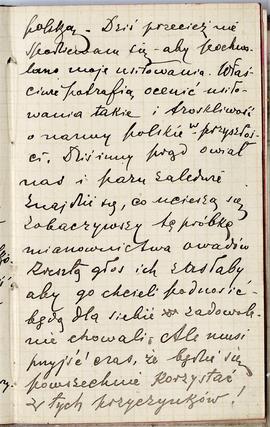 polską. Dziś przecież nie
spodziewam się - aby pochwa-
lano moje usiłowania. Właś-
ciwie potrafią ocenić usiło-
wania takie i troskliwość
o nazwy polskie w przyszłoś-
ci. Dzisiejszy prąd owiał
nas i paru zaledwie
znajdzie się, co ucieszą się
zobaczywszy tę próbkę
mianownictwa owadów
Zresztą głos ich zasłaby
aby go chcieli podnosić -
będą dla siebie zadowole-
nie chowali. Ale musi
przyjść czas, że będzie się
powszechnie korzystać
z tych przyczynków!